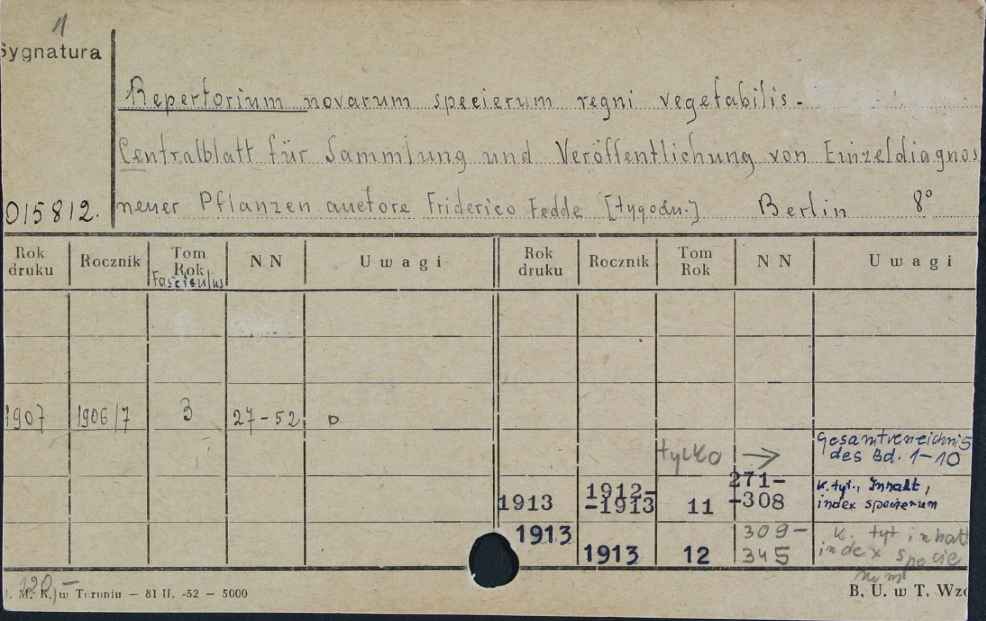 1
Sygnatura
Repertorium novarum specierum regni vegetabilis.
Centralblatt für Sammlung und Veröffentlichung von Einzeldiagnos
015812. neuer Pflanzen auctore Friderico Fedde [tygodn.] Berlin 8°
Rok druku Rocznik Tom Rok Fasciculus N N Uwagi Rok druku Rocznik Tom Rok N N Uwagi
1907 1906/7 3 27-52 D
tylko → Gesamtverzeichnis
des Bd. 1-10
1913 1912-
-1913 11 271-
-308 k. tyt., Inhalt,
index specierum
1913 1913 12 309-
345 k. tyt inhalt
index specie
120,-
w Toruniu — 81 U. -52 — 5000
B. U. w T. Wzó